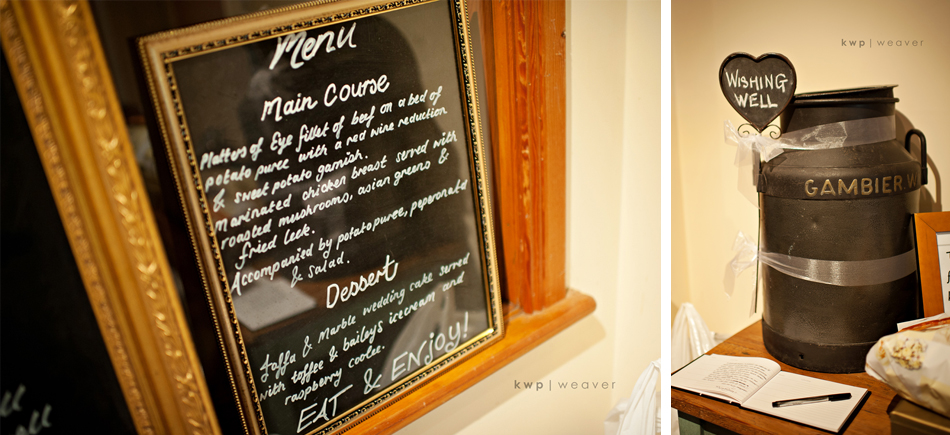 Menu
Main Course
Platters of Eye fillet of beef on a bed of
potato puree with a red wine reduction
& sweet potato garnish.
Marinated chicken breast served with
roasted mushrooms, asian greens &
fried leek.
Accompanied by potato puree, peperonata
& salad.
Dessert
Jaffa & Marble wedding cake served
with toffee & baileys icecream and
raspberry coolee.
EAT & ENJOY!
kwp | weaver
kwp | weaver
WISHING
WELL
GAMBIER.W